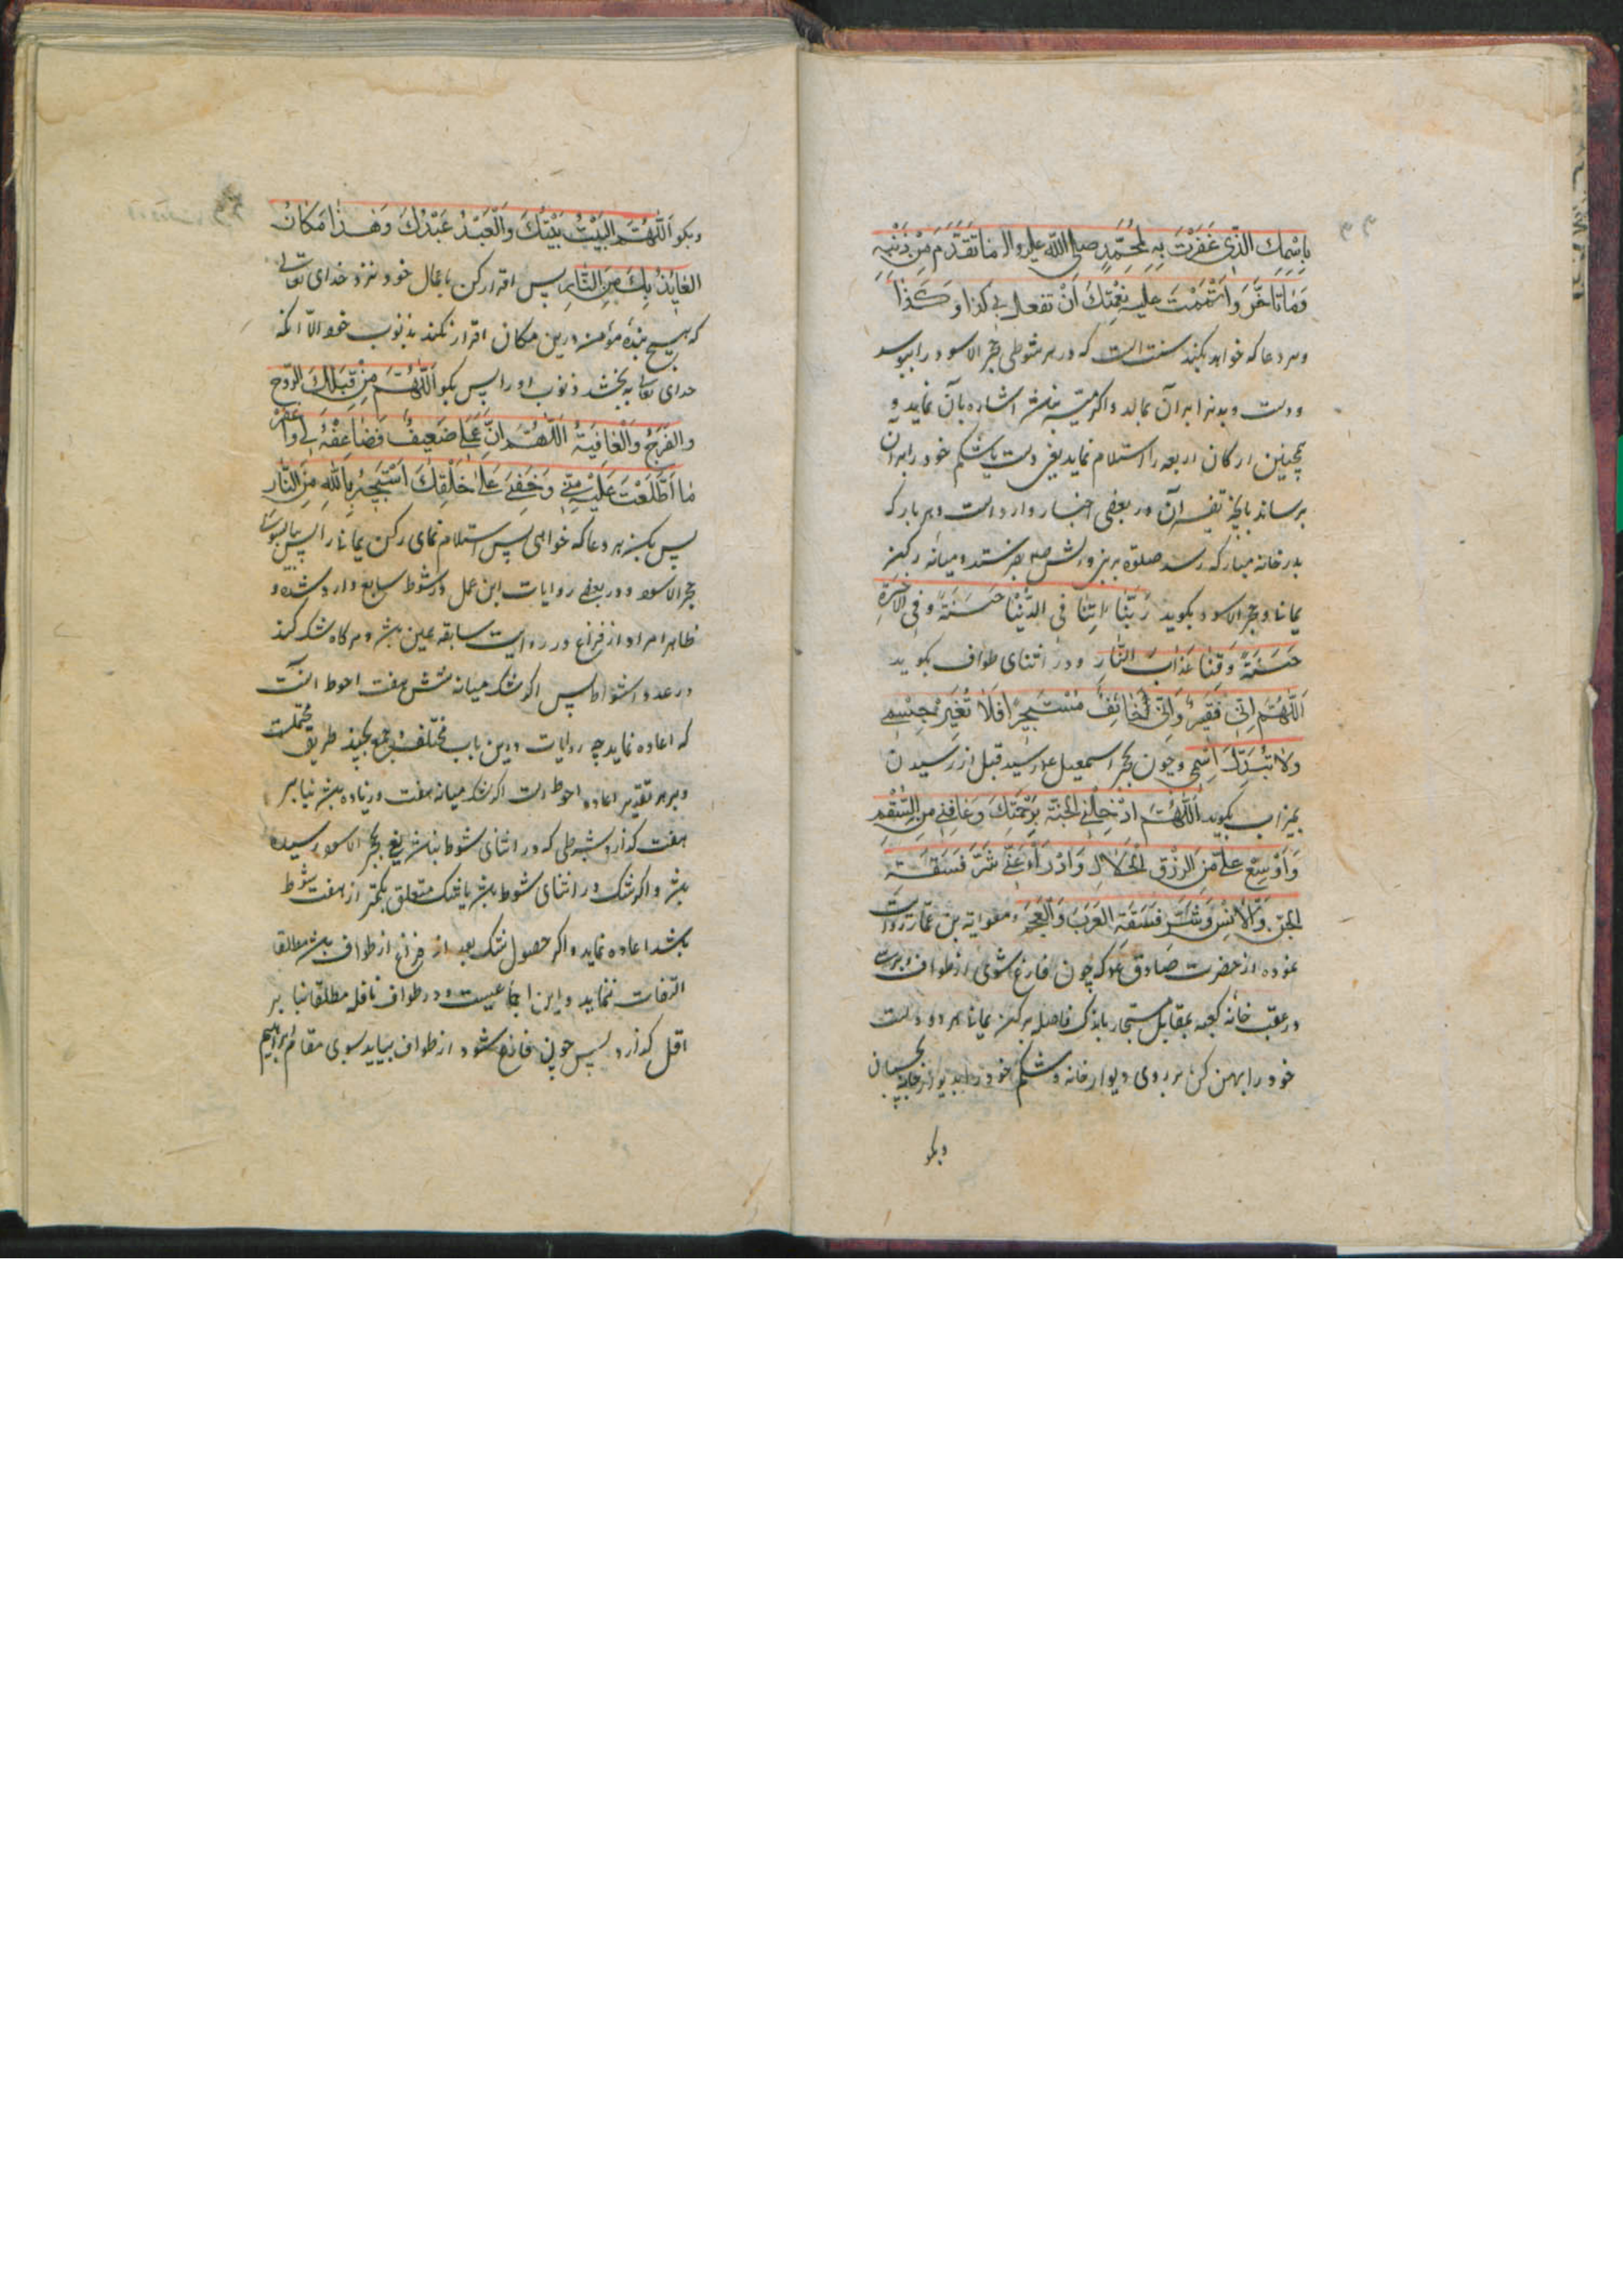 بِاسْمِكَ الَّذِی غَفَرْتَ بِهِ لِمُحَمَّدٍ صلی اللّه علیه واله مٰا تَقَدَّمَ مِنْ ذَنْبِهِ
وَمٰا تَاَخَّرَ وَاَتْمَمْتَ علیه نِعْمَتَكَ اَنْ تفعل بی كذا وَكَذٰا
وهر دعا که خواهد بکند سنت است که در هر شوطی حجر الاسود را ببوسد
و دست و بدنرا بر آن بمالد و اکر میسر نباشد اشاره بآن نماید و
همچنین ارکان اربعه را استلام نماید یعنی دست یا شکم خود را بر آن
برساند بآنچه تفسیر آن در بعضی اخبار وارد است و هر بار که
بدر خانه مبارکه رسد صلوة بر پیغمبر و آلش صلی بفرستد و میانه رکن
یمانی و حجر الاسود بکوید رَبَّنٰا اٰتِنٰا فی الدُّنْیٰا حَسَنَةً وَفِی الْاٰخِرَةِ
حَسَنَةً وَقِنٰا عَذٰابَ النّٰارِ و در اثنای طواف بکوید
اَللّٰهُمَّ اِنِّی فَقیرٌ وَاِنِّی خٰائِفٌ مُسْتَجیرٌ فَلٰا تُغَیِّرْ جِسْمِی
وَلٰا تُبَدِّلْ اِسْمِی و چون بحجر اسمعیل ع رسید قبل از رسیدن
بمیزاب بکوید اَللّٰهُمَّ ادْخِلْنِی الْجَنَّةَ بِرَحْمَتِكَ وَعٰافِنِی مِنَ السُّقْمِ
وَاَوْسِعْ عَلَیَّ مِنَ الرِّزْقِ الْحَلٰالِ وَادْرَأْ عَنِّی شَرَّ فَسَقَةِ
الْجِنِّ وَالْاِنْسِ وَشَرَّ فَسَقَةِ الْعَرَبِ وَالْعَجَمِ و معویة بن عمار روایت
نموده از حضرت صادق ع که چون فارغ شوی از طواف و برسی
در عقب خانه کعبه بمقابل مستجار باندک فاصله برکن یمانی هر دو دست
خود را پهن کن بر روی دیوار خانه و شکم خود را بدیوار خانه بچسبان
وبکو
وبکو اَللّٰهُمَّ الْبَیْتُ بَیْتُكَ وَالْعَبْدُ عَبْدُكَ وَهٰذٰا مَكٰانُ
الْعٰائِذِ بِكَ مِنَ النّٰارِ پس اقرار کن باعمال خود نزد خدای تعالی
که هیچ بندهٔ مؤمنه درین مکان اقرار نکند بذنوب خود الّا آنکه
خدای تعالی ببخشد ذنوب او را پس بکو اَللّٰهُمَّ مِنْ قِبَلِكَ الرَّوْحُ
وَالْفَرَجُ وَالْعٰافِیَةُ اَللّٰهُمَّ اِنَّ عَمَلِی ضَعِیفٌ فَضٰاعِفْهُ لِی وَاغْفِرْ
مٰا اطَّلَعْتَ عَلَیْهِ مِنِّی وَخَفِیَ عَلٰی خَلْقِكَ اَسْتَجِیرُ بِاللّٰهِ مِنَ النّٰارِ
پس بکن هر دعا که خواهی پس استلام نمای رکن یمانی را پس بیا بسوی
حجر الاسود و در بعضی روایات این عمل در شوط سابع وارد شده و
ظاهرا مراد از فراغ در روایت سابقه همین باشد و هر کاه شک کند
در عدد اشواط پس اکر شک میانه شش هفت احوط آنست
که اعاده نماید چه روایات درین باب مختلف و جمع بچند طریق محتملست
و بر هر تقدیر اعاده احوط است اکر شک میانه هفت و زیاده باشد بنا بر
هفت کذارد بشرطی که در اثنای شوط نباشد یعنی بحجر الاسود رسیده
باشد و اکر شک در اثنای شوط باشد یا شک متعلق بکمتر از هفت شوط
باشد اعاده نماید و اکر حصول شک بعد از فراغ از طواف باشد مطلقا
التفات ننماید و این اجماعیست و در طواف نافله مطلقا بنا بر
اقل کذارد پس چون فارغ شود از طواف بیاید بسوی مقام ابراهیم